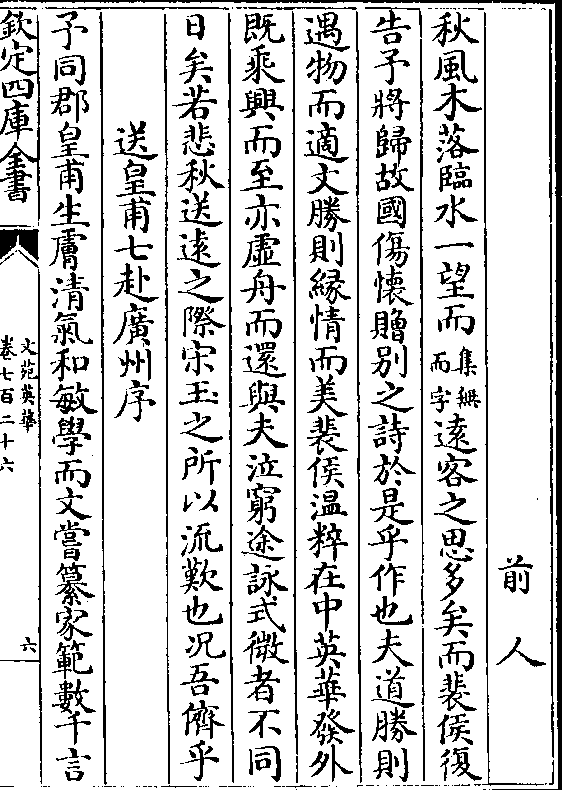 前人
秋風木落臨水一望而集無而字遠客之思多矣而裴侯復
告予將歸故國傷懷贈别之詩於是乎作也夫道勝則
遇物而適文勝則縁情而美裴侯温粹在中英華發外
既乘興而至亦虚舟而還與夫泣窮途詠式微者不同
日矣若悲秋送遠之際宋玉之所以流歎也况吾儕乎
送皇甫七赴廣州序
予同郡皇甫生膚清氣和敏學而文嘗纂家範數千言
欽定四庫全書
文苑英華
卷七百二十六
六